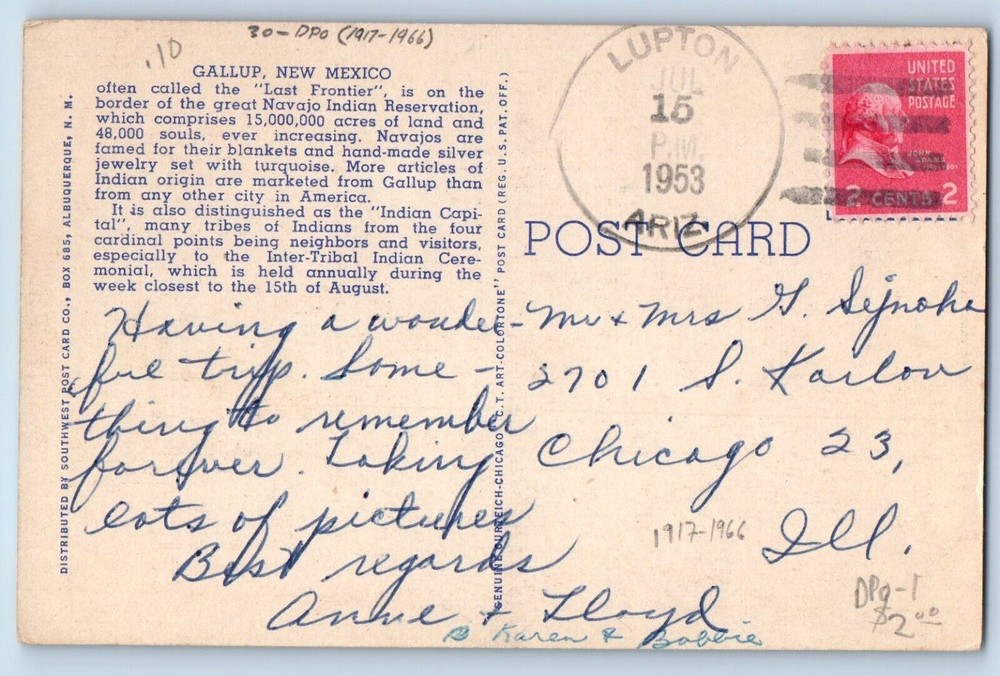 30 - DPO (1917-1966)
.10
GALLUP, NEW MEXICO
often called the "Last Frontier", is on the
border of the great Navajo Indian Reservation,
which comprises 15,000,000 acres of land and
48,000 souls, ever increasing. Navajos are
famed for their blankets and hand-made silver
jewelry set with turquoise. More articles of
Indian origin are marketed from Gallup than
from any other city in America.
It is also distinguished as the "Indian Capi-
tal", many tribes of Indians from the four
cardinal points being neighbors and visitors,
especially to the Inter-Tribal Indian Cere-
monial, which is held annually during the
week closest to the 15th of August.
DISTRIBUTED BY SOUTHWEST POST CARD CO., BOX 685, ALBUQUERQUE, N. M.
GENUINE CURTEICH-CHICAGO "C. T. ART-COLORTONE" POST CARD (REG. U. S. PAT. OFF.)
LUPTON
JUL
15
P.M.
1953
ARIZ.
UNITED
STATES
POSTAGE
JOHN
ADAMS
2 CENTS 2
POST CARD
Having a wonder-
ful trip. Some-
thing to remember
forever. Taking
lots of pictures
Best regards
Anne & Lloyd
Karen & Bobbie
Mr & Mrs G. Sejnoha
2701 S. Karlov
Chicago 23,
Ill.
1917-1966
DPO-1
$2.00